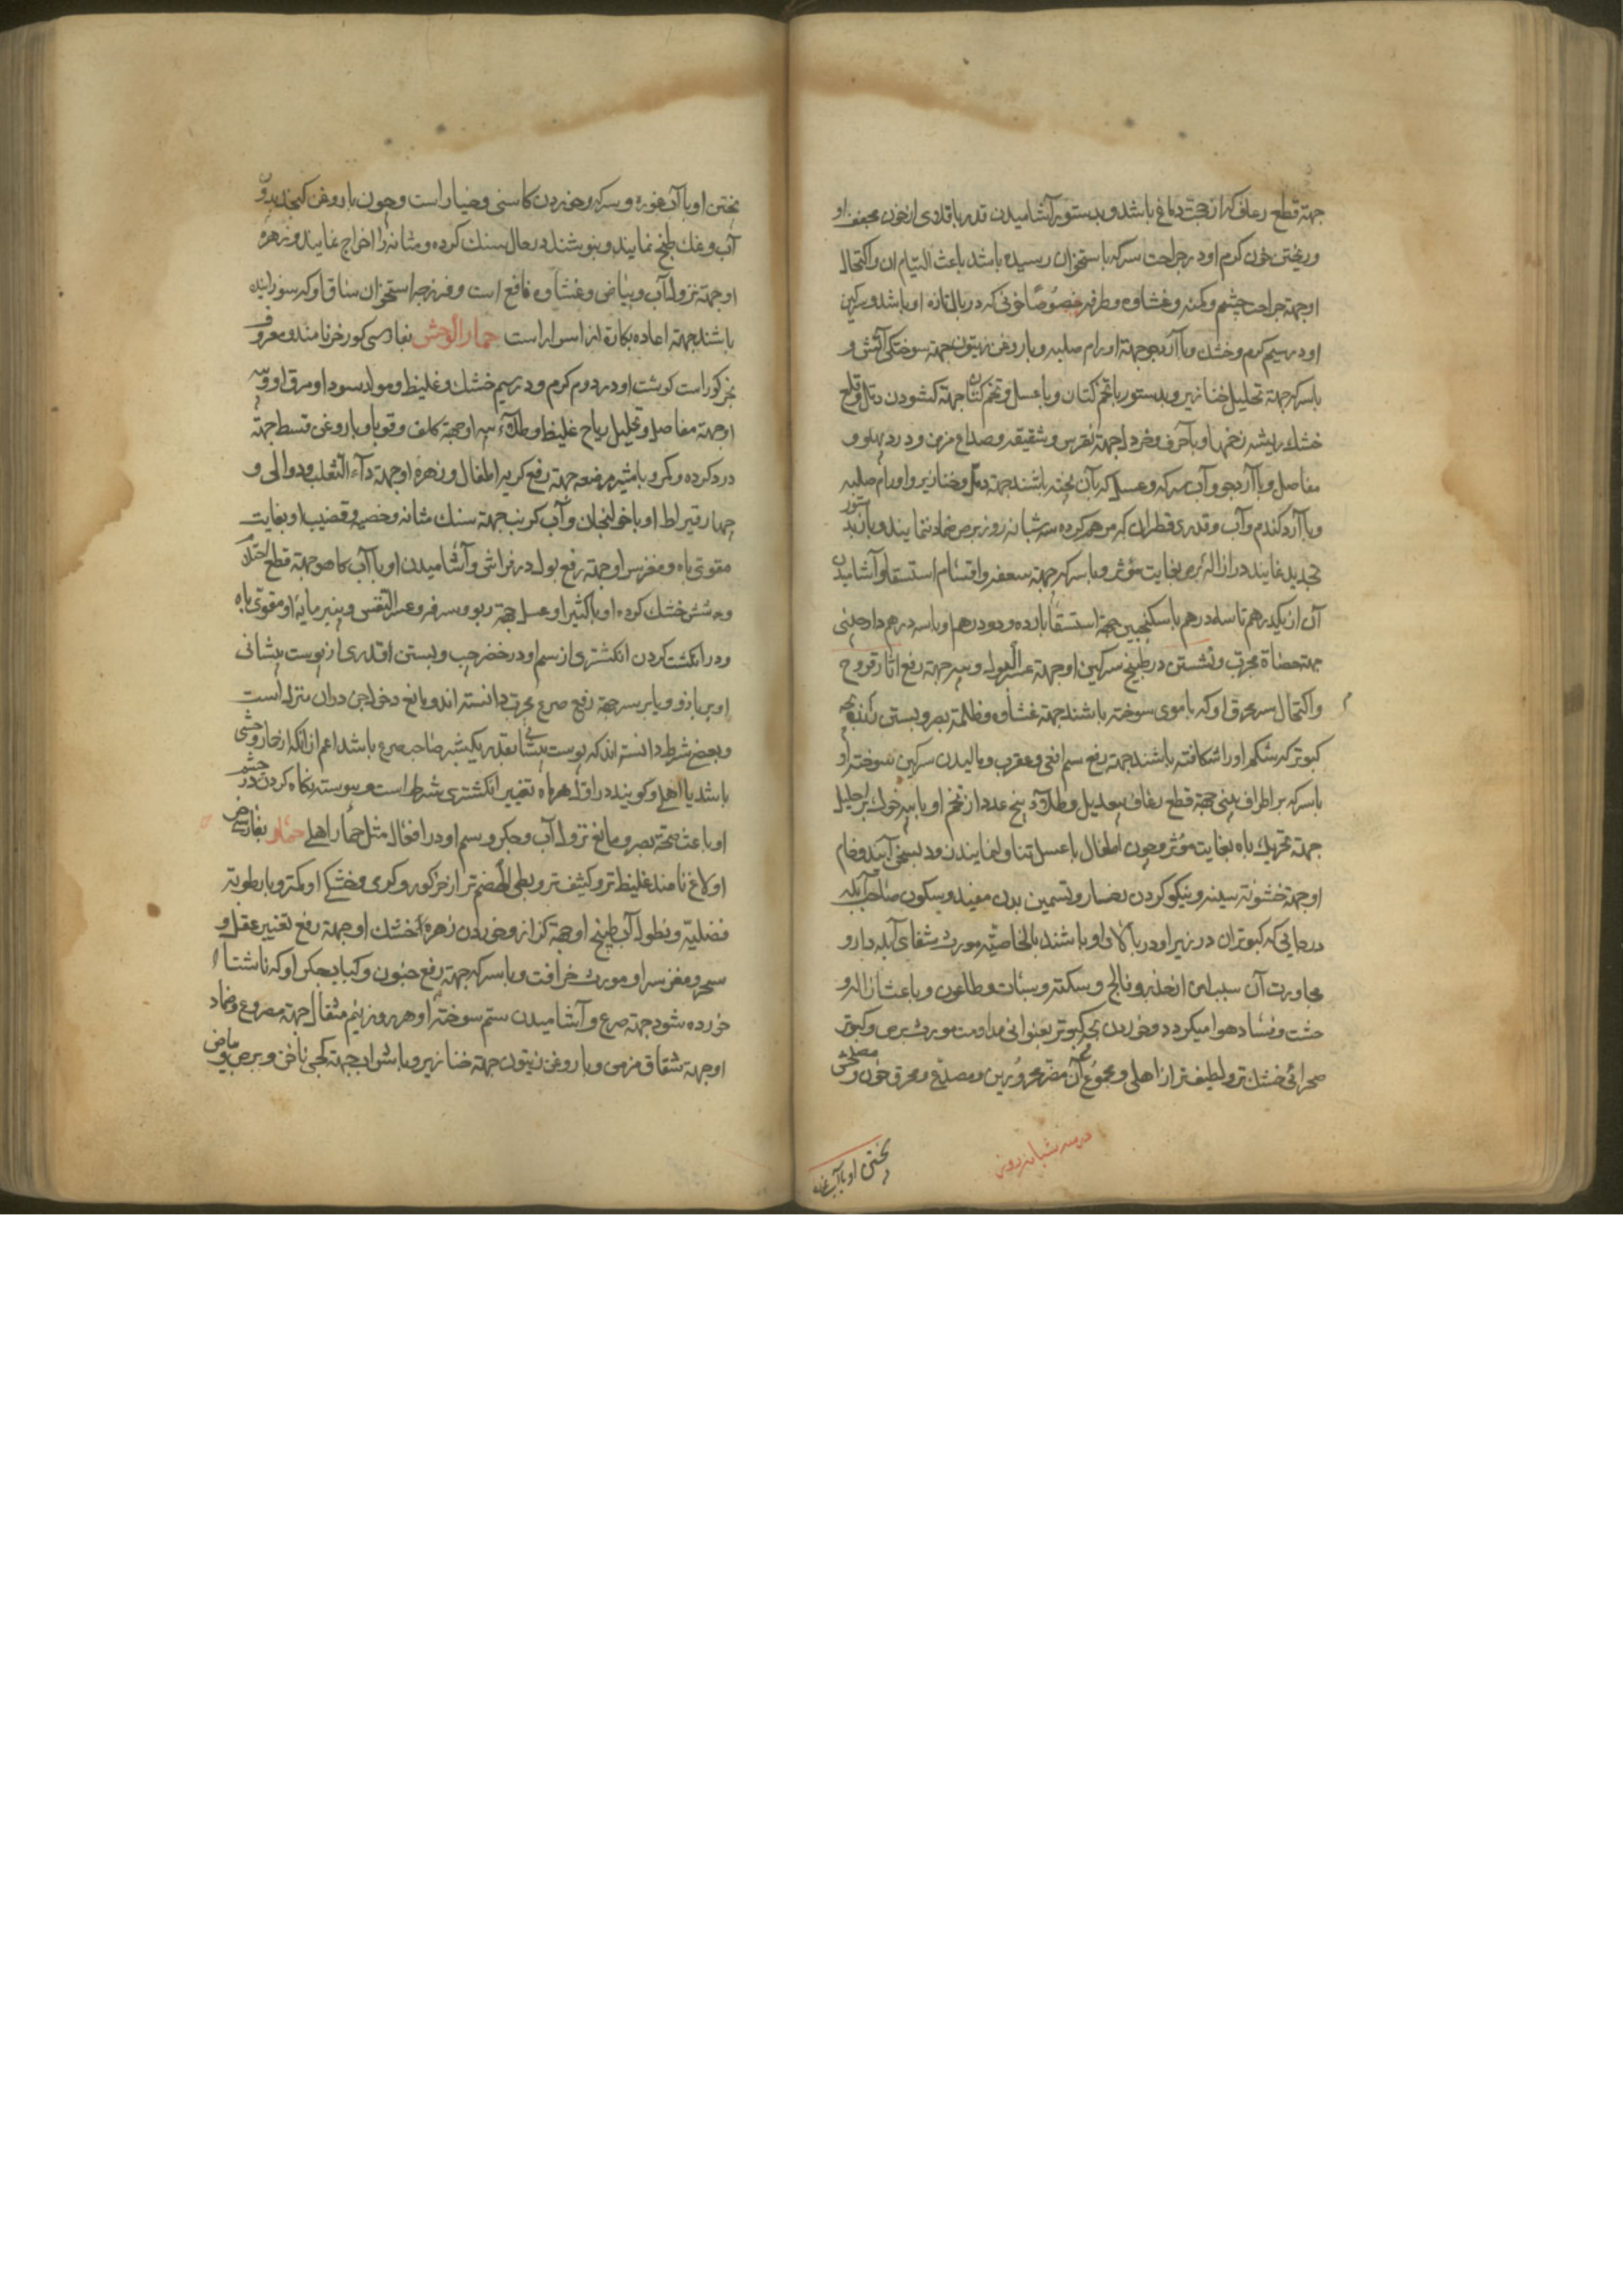 جهته قطع رعاف که از حجب دماغ باشد و بدستور آشامیدن قدر باقلادی از خون مجفف او
و ریختن خون کرم او در جراحت سر که باستخوان رسیده باشد باعث التیام ان و اکتحال
او جهته جراحت چشم و کمنه و غشاوه و طرفه خصوصا خونی که در بال تازه او باشد و سرکین
او در سیم کرم و خشک و با آرد جو جهته اورام صلبه و با روغن زیتون جهته سوختکی آتش و
با سرکه جهته تحلیل خنازیر و بدستور با تخم کتان و با عسل و تخم کتان جهته کشودن دمل و قلع
خشک ریشه زخمها و با حرف و خردل جهته نقرس و شقیقه و صداع مزمن و درد پهلو و
مفاصل و با آرد جو و آب سرکه و عسل که بآن پخته باشند جهته دمل و خنازیر و اورام صلبه
و با آرد کندم و آب و قدری قطران که مرهم کرده سه شبانه روز بر برص ضماد نمایند و باز بدستور
تجدید نمایند در ازاله برص بغایت مؤثر و با سرکه جهته سعفه و اقسام استسقا و آشامیدن
آن از یکدرهم تا سه درهم با سکنجبین جهته استسقا بارده و دو درهم او با سه درهم دارچینی
جهته حصاة مجرب و نشستن در طبیخ سرکین او جهته عسر البول و پیه جهته رفع اثار قروح
و اکتحال سر محرق او که با موی سوخته باشند جهته غشاوه و ظلمة بصر و بستن زنده بچه
کبوتر که شکم او را شکافته باشند جهته رفع سم افعی و عقرب و مالیدن سرکین سوخته او
با سرکه بر اطراف بینی جهته قطع رعاف بیعدیل و طلاء پنج عدد از تخم او با پیه خوک بر احلیل
جهته تحریک باه بغایت مؤثر و چون اطفال با عسل تناول نمایند زود بسخن آیند و خام
او جهته خشونة سینه و نیکو کردن رخسار و تسمین بدن مفید و سکون صاحب آبله
در جایی که کبوتران در زیر او در بالای او باشند بالخاصیه مورث شفای آبله دار و
مجاورت آن سبب امن از خدر و فالج و سکته و سبات و طاعون و باعث ازاله و
خشت و فساد هوا میکردد و خوردن بچه کبوتر بعنوانی مداومت مورث برص و کبوتر
صحرائی خشک تر و لطیف تر از اهلی و مجموع آن مضر محرورین و مصدع و محرق خون و مصلحش
در سه شبانه روز
پختن او با آب غوره
پختن او با آب غوره و سرکه و خوردن کاسنی و خیار است و چون با روغن کنجد بدون
آب و نمک طبخ نمایند و بنوشند در حال سنک کرده و مثانه را اخراج نمایند و زهره
او جهته نزول آب و بیاض و غشاوه نافع است و فرزجه استخوان ساق او که سوزانیده
باشند جهته اعاده بکارة از اسرار است حمار الوحش بفارسی کورخر نامند و معروف
بخر کور است کوشت او در دوم کرم و در سیم خشک و غلیظ و مولد سودا و مرق او و پیه
او جهته مفاصل و تحلیل ریاح غلیظ و طلاء پیه او جهته کلف و قوبا و با روغن قسط جهته
درد کرده و کمر و با شیر مرضعه جهته رفع کریه اطفال و زهره او جهته داء الثعلب و دوالی و
چهار قیراط او با خولنجان و آب کرنب جهته سنک مثانه و خصیه و قضیب او بغایت
مقوی باه و مغز سر او جهته رفع بول در فراش و آشامیدن او با آب کاهو جهته قطع احتلام
و شش خشک کرده او با کثیرا و عسل جهته ربو و سرفه و عسر التنفس و پنیر مایه او مقوی باه
و در انکشت کردن انکشتری از سم او در خنصر چپ و بستن اقدری از پوست پیشانی
او بر بازو و یا بر سر جهته رفع صرع مجرب دانسته اند و مانع دخول جن در ان منزل است
و بعضی شرط دانسته اند که پوست پیشانی بقدر یکشبر صاحب صرع باشد اعم از انکه از حمار وحشی
باشد یا اهلی و کویند در اول هر ماه تغییر انکشتری شرط است و پیوسته نکاه کردن در چشم
او باعث صحة بصر و مانع نزول آب و جکر و سم او در افعال مثل حمار اهلی حمار بفارسی خر
اولاغ نامند غلیظ تر و کثیف تر و بطی الهضم تر از خر کور و کرمی و خشکی او کمتر و با رطوبة
فضلیة و نطول آب طبیخ او جهته کزاز و خوردن زهره خشک او جهته رفع تغییر عقل و
سحر و مغز سر او مورث خرافت و با سرکه جهته رفع جنون و کباب جکر او که ناشتا
خورده شود جهته صرع و آشامیدن سم سوخته او هر روز نیم مثقال جهته مصروع و ضماد
او جهته شقاق مزمن و با روغن زیتون جهته خنازیر و با شراب جهته کجی ناخن و برص و بیاض